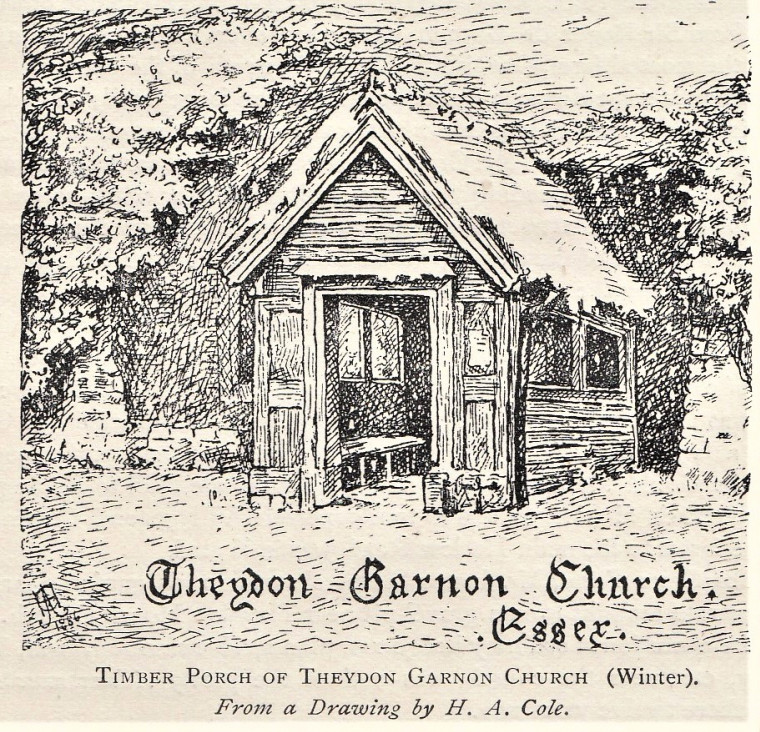 Theydon Garnon Church.
.Essex.
1886
TIMBER PORCH OF THEYDON GARNON CHURCH (Winter).
From a Drawing by H. A. Cole.